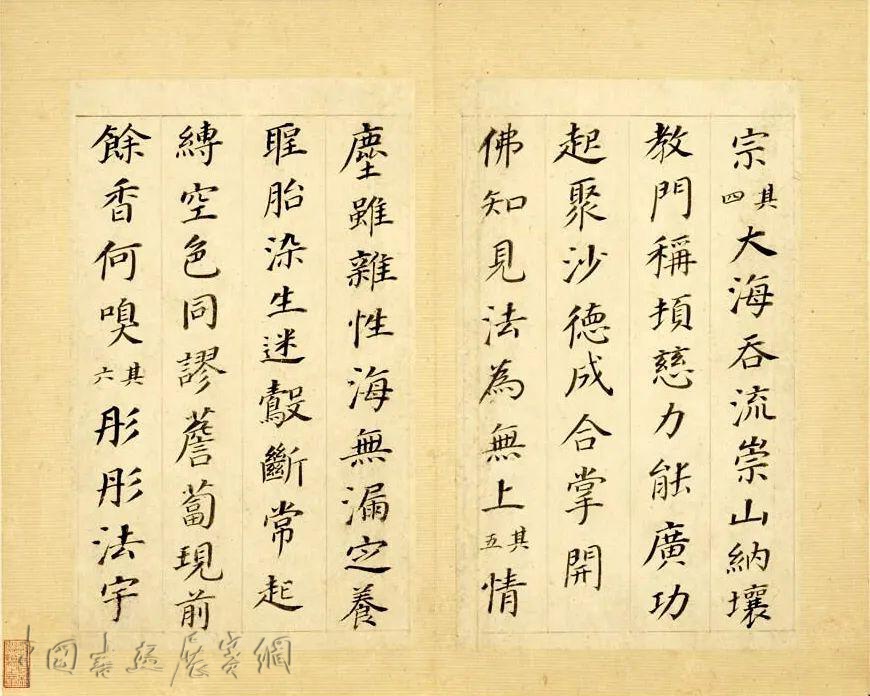 宗其四大海吞流崇山納壤
教門稱頓慈力能廣功
起聚沙德成合掌開
佛知見法為無上其五情
塵雖雜性海無漏定養
聖胎染生迷鷇斷常起
縛空色同謬薝蔔現前
餘香何嗅其六彤彤法宇